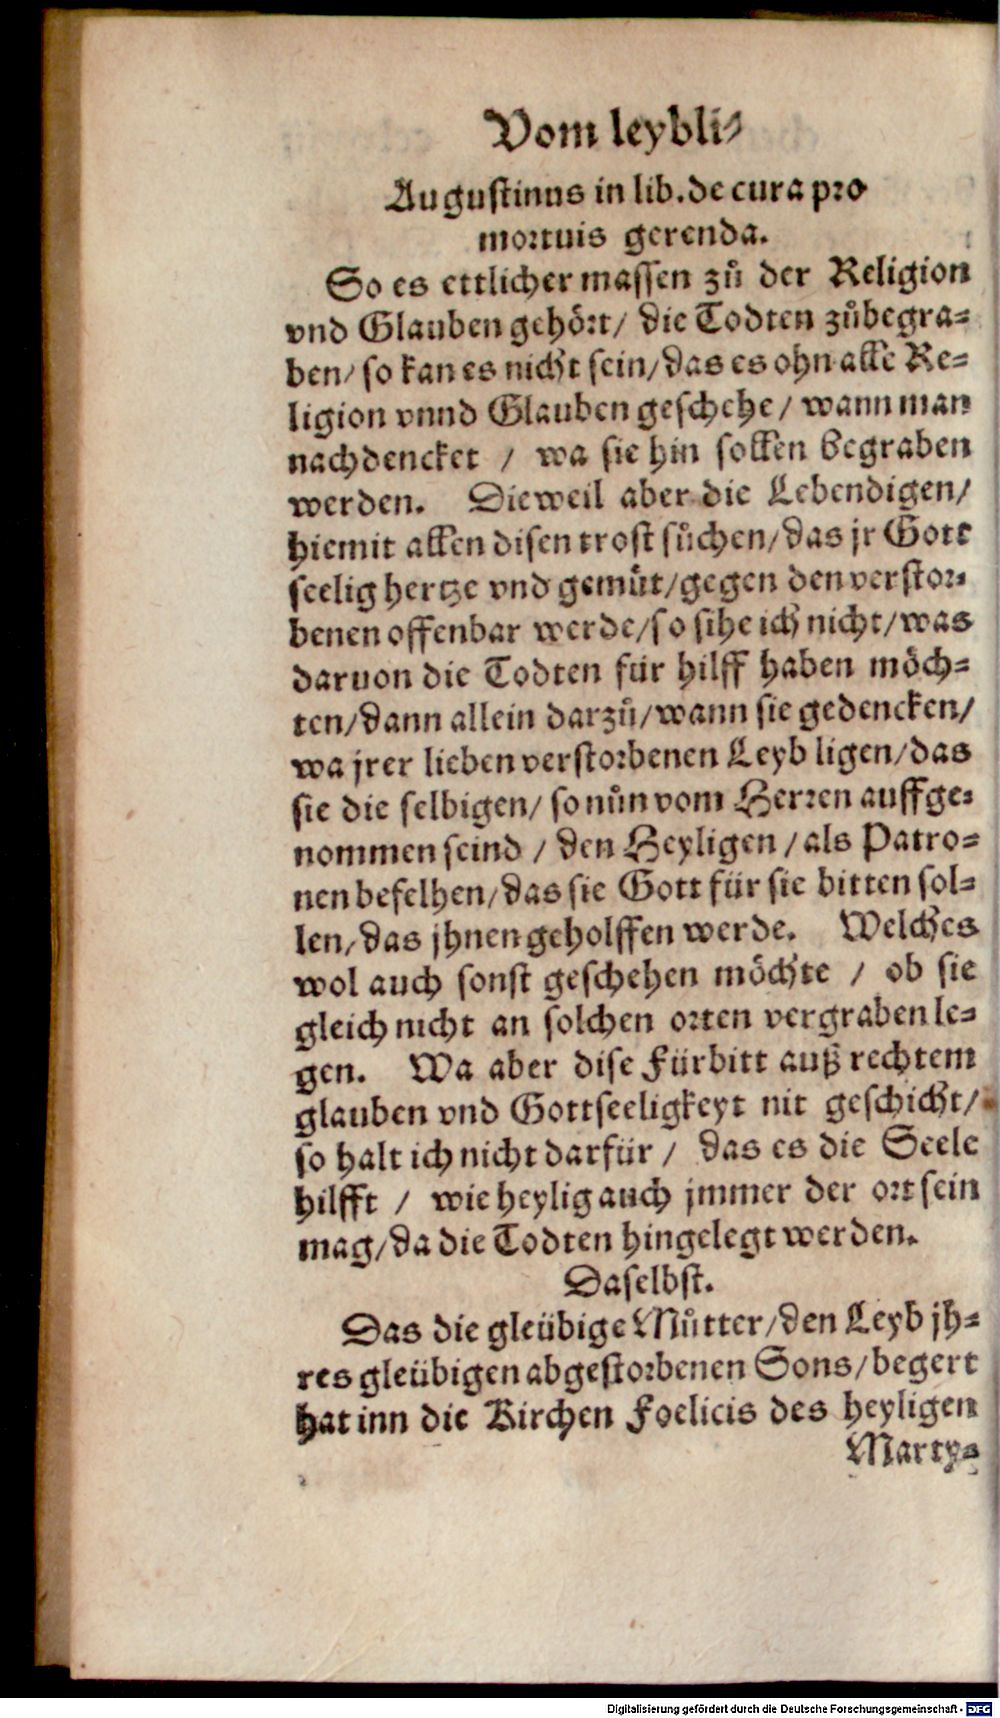 Vom leybli⸗
Augustinus in lib. de cura pro
mortuis gerenda.
So es ettlicher massen zů der Religion
vnd Glauben gehört/ die Todten zůbegra⸗
ben/ so kan es nicht sein/ das es ohn alle Re⸗
ligion vnnd Glauben geschehe/ wann man
nachdencket / wa sie hin sollen begraben
werden. Dieweil aber die Lebendigen/
hiemit allen disen trost sůchen/ das jr Gott
seelig hertze vnd gemüt/ gegen den verstor⸗
benen offenbar werde/ so sihe ich nicht/ was
daruon die Todten für hilff haben möch⸗
ten/ dann allein darzů/ wann sie gedencken/
wa jrer lieben verstorbenen Leyb ligen/ das
sie die selbigen/ so nůn vom Herren auffge⸗
nommen seind / den Heyligen / als Patro⸗
nen befelhen/ das sie Gott für sie bitten sol⸗
len/ das jhnen geholffen werde. Welches
wol auch sonst geschehen möchte / ob sie
gleich nicht an solchen orten vergraben le⸗
gen. Wa aber dise Fürbitt auß rechtem
glauben vnd Gottseeligkeyt nit geschicht/
so halt ich nicht darfür / das es die Seele
hilfft / wie heylig auch jmmer der ort sein
mag/ da die Todten hingelegt werden.
Daselbst.
Das die gleübige Můtter/ den Leyb jh⸗
res gleübigen abgestorbenen Sons/ begert
hat inn die Kirchen Foelicis des heyligen
Marty⸗
Digitalisierung gefördert durch die Deutsche Forschungsgemeinschaft - DFG